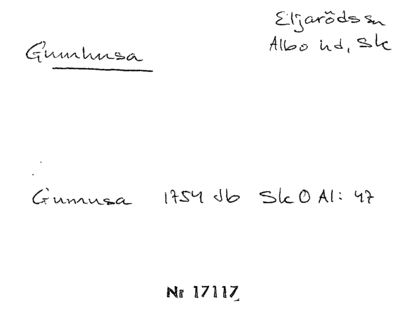 Gumhusa
Eljarödssn
Albo hd, Sk
Gumusa 1754 db Sk O Al: 47
Nr 17117